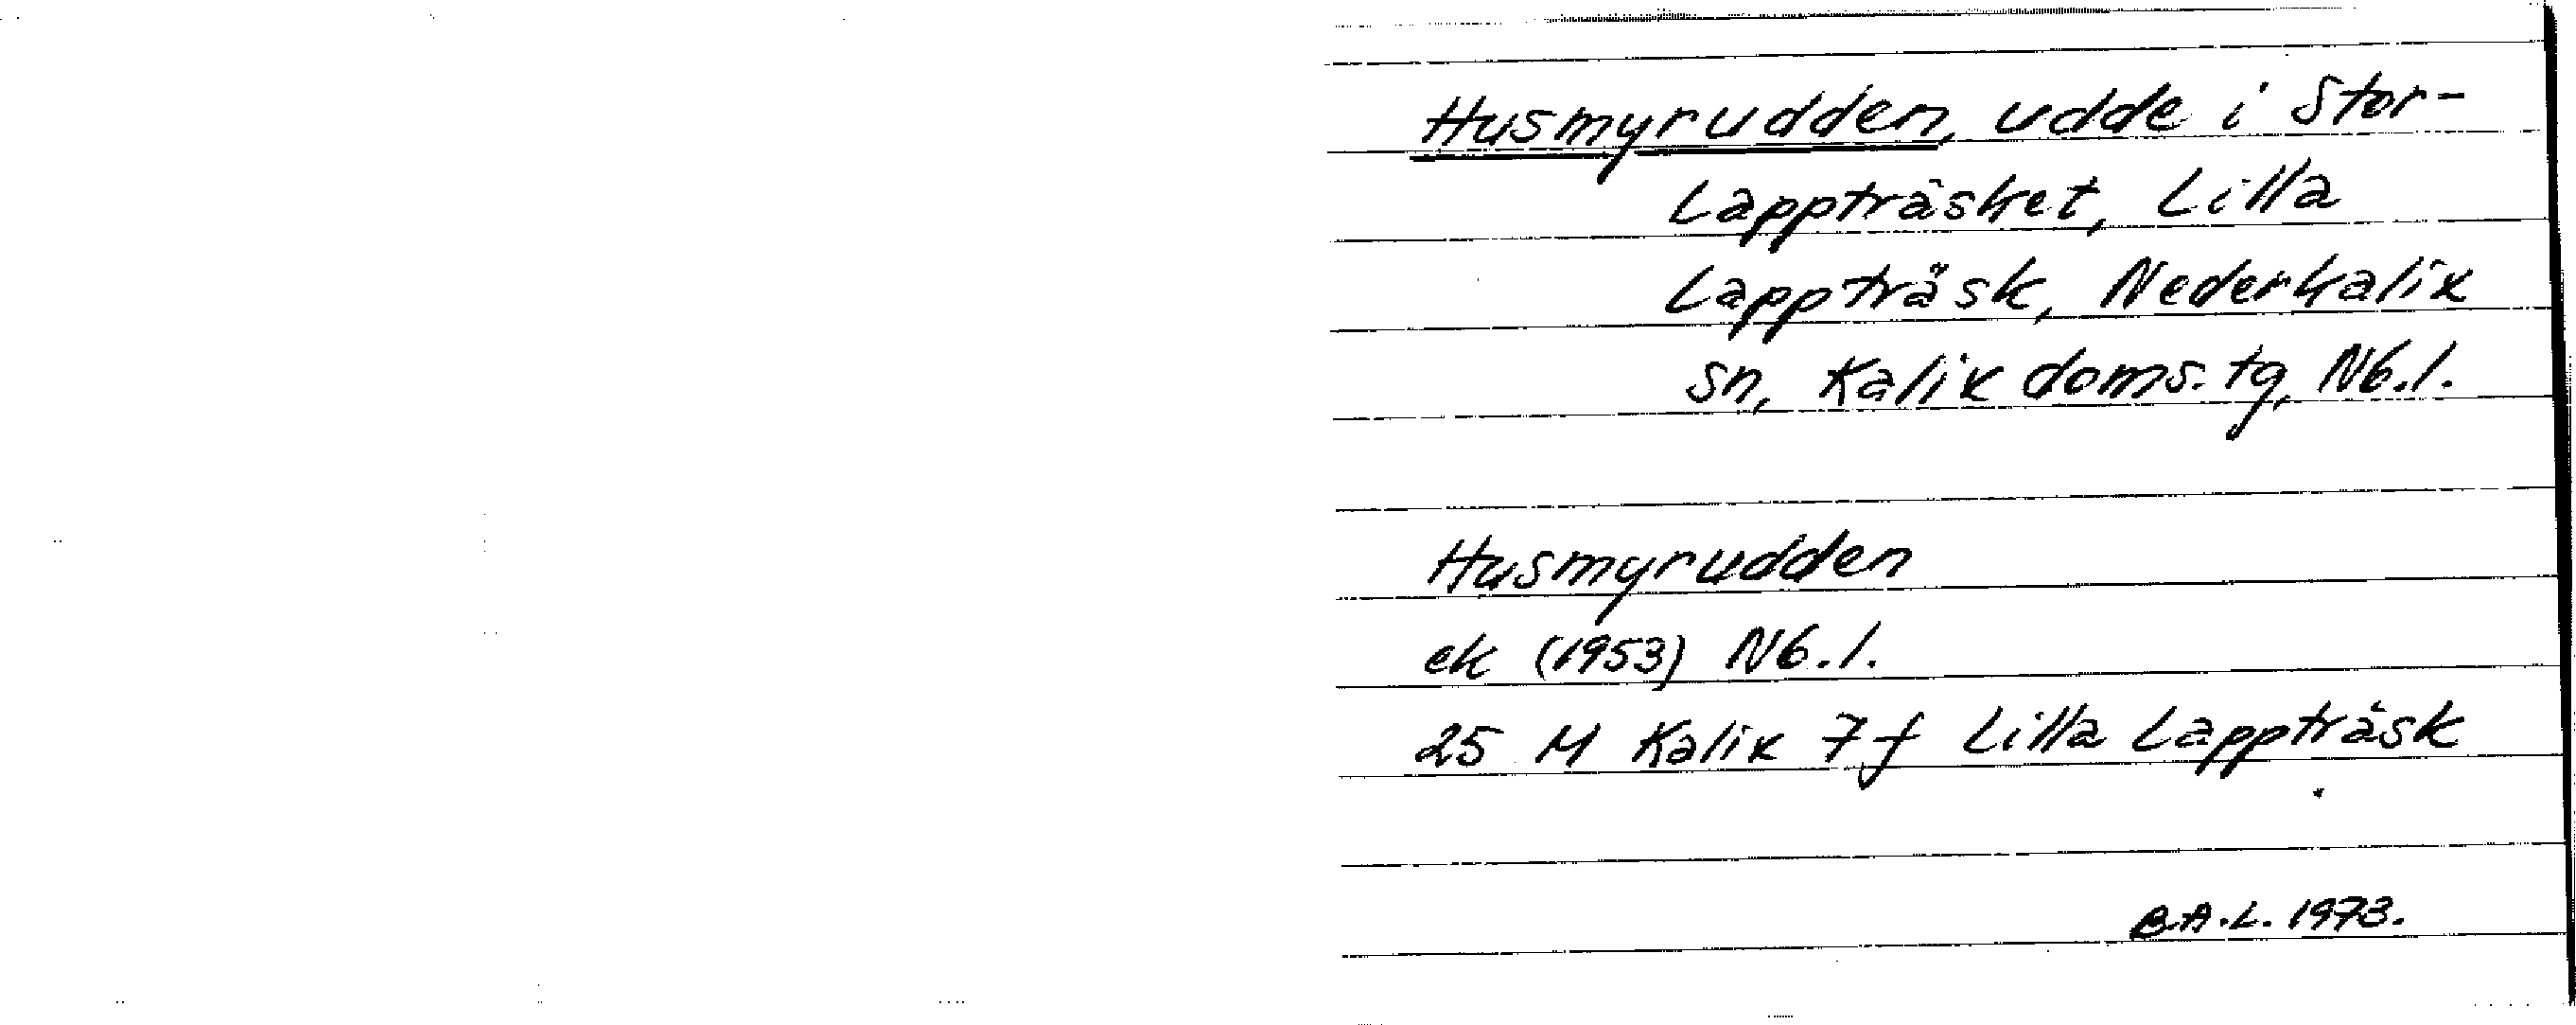 Husmyrudden, udde i Stor-
Lappträsket, Lilla
Lappträsk, Nederkalix
sn, Kalix doms. tg, Nb.l.
Husmyrudden
ek (1953) Nb.l.
25 M Kalix 7f Lilla Lappträsk
B.A.L. 1973.